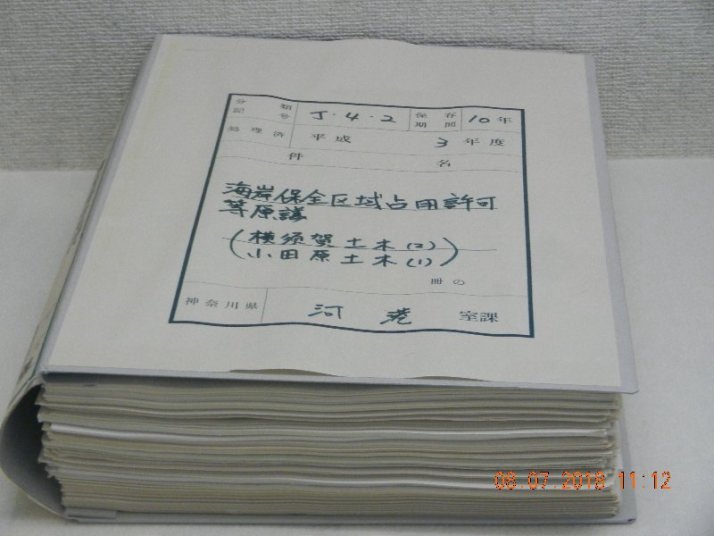 分類記号 J・4・2 保存期間 10年
処理済 平成 3年度
件名
海岸保全区域占用許可
等原議
(横須賀土木(2)
小田原土木(1))
冊の
神奈川県 河港 室課
08.07.2018 11:12